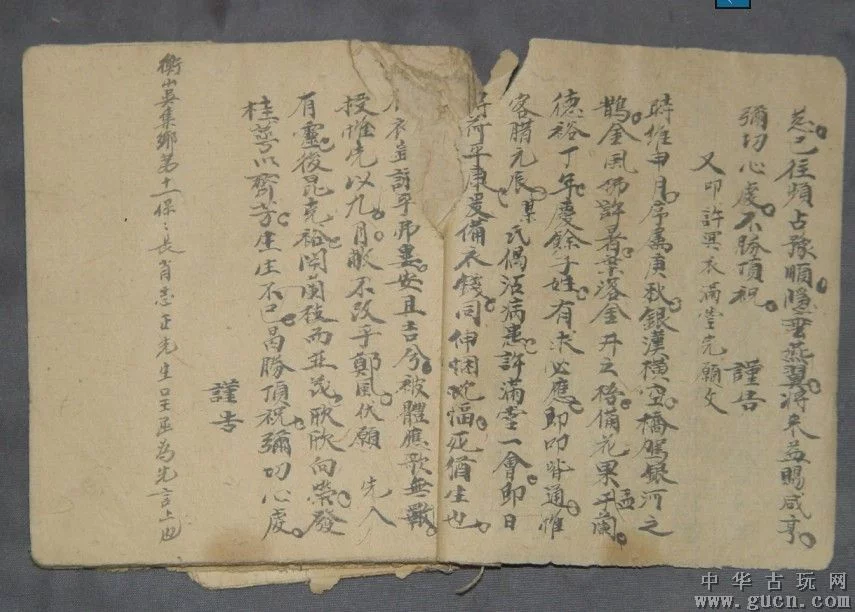 慈已往頻占豫順隱雲燕翼將來益賜咸亨
彌切心虔不勝頂祝 謹告
又叩許冥衣滿堂完願文
時維申月序属庚秋銀漢橫空橋駕銀河之
鵲金風拂許暑葉落金井之梧備花果盂蘭
德裕丁年慶餘子姓有求必應即叩皆通惟
客腊元辰某氏偶沾病患許滿堂一會即日
荷平康爰備衣錢同伸悃忱死猶生也
衣豈詩乎弗異安且吉兮被體應歌無
授惟先以九月敢不改乎鄭風伏願 先人
有靈後昆克裕閑蘭枝而並茂欣欣向榮發
桂萼以齊芳生生不已曷勝頂祝彌切心虔
謹告
衡山吳集鄉第十一保保長肖志正先生呈函為先言上也
中华古玩网
www.gucn.com